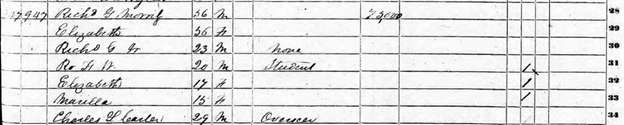 Richd G Morris 56 M 75,000 28
Elizabeth 56 F 29
Richd G Jr 23 M None 30
20 M Student 1 31
Elizabeth 17 F 1 32
Marilla 15 F 1 33
Charles H Carter 29 M Overseer 34